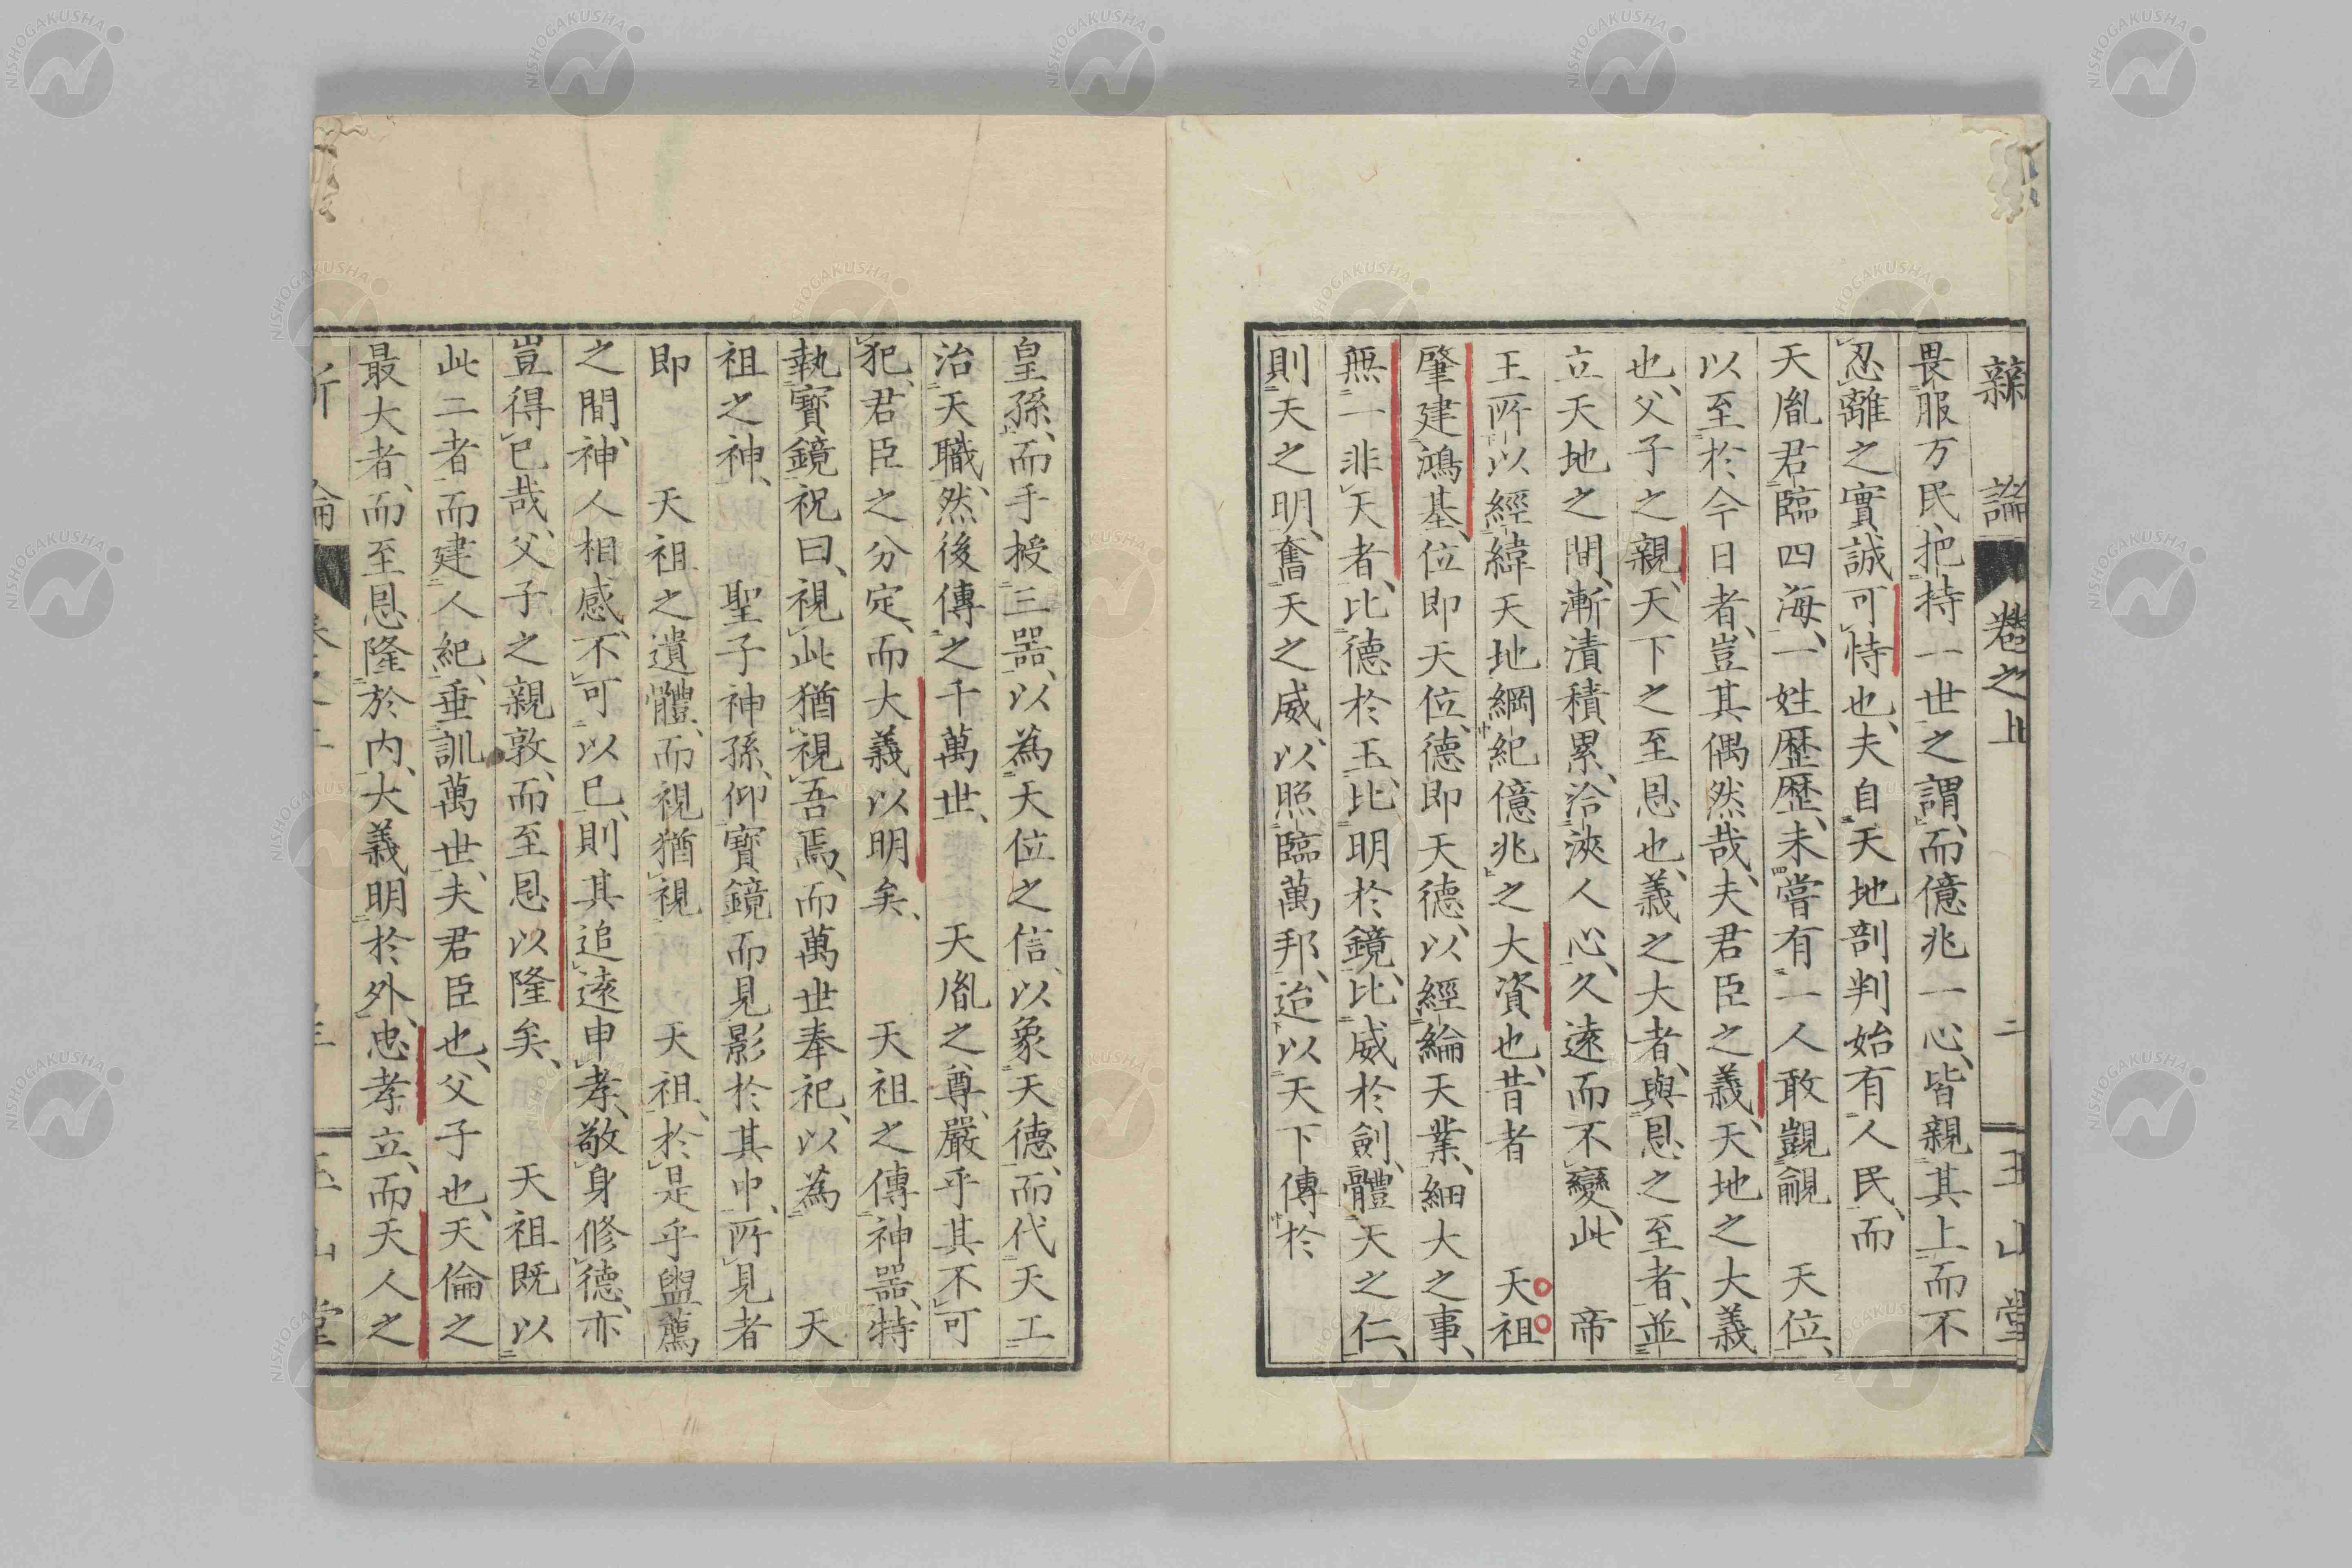 新論 卷之上 二 玉山堂
畏服万民、把持一世之謂、而億兆一心、皆親其上而不
忍離之實、誠可恃也、夫自天地剖判始有人民、而
天胤君臨四海、一姓歷歷、未嘗有一人敢覬覦 天位、
以至於今日者、豈其偶然哉、夫君臣之義、天地之大義
也、父子之親、天下之至恩也、義之大者、與恩之至者、並
立天地之間、漸漬積累、洽浹人心、久遠而不變、此 帝
王所以經緯天地綱紀億兆之大資也、昔者 天祖
肇建鴻基、位即天位、德即天德、以經綸天業、細大之事、
無一非天者、比德於玉、比明於鏡、比威於劍、體天之仁、
則天之明、奮天之威、以照臨萬邦、迨以天下傳於
皇孫、而手授三器、以為天位之信、以象天德、而代天工
治天職、然後傳之千萬世、 天胤之尊、嚴乎其不可
犯、君臣之分定、而大義以明矣、 天祖之傳神器、特
執寶鏡祝曰、視此猶視吾焉、而萬世奉祀、以為 天
祖之神、 聖子神孫、仰寶鏡而見影於其中、所見者
即 天祖之遺體、而視猶視 天祖、於是乎盥薦
之間、神人相感、不可以已、則其追遠申孝、敬身修德、亦
豈得已哉、父子之親敦、而至恩以隆矣、 天祖既以
此二者而建人紀、垂訓萬世、夫君臣也、父子也、天倫之
最大者、而至恩隆於內、大義明於外、忠孝立、而天人之
NISHOGAKUSHA